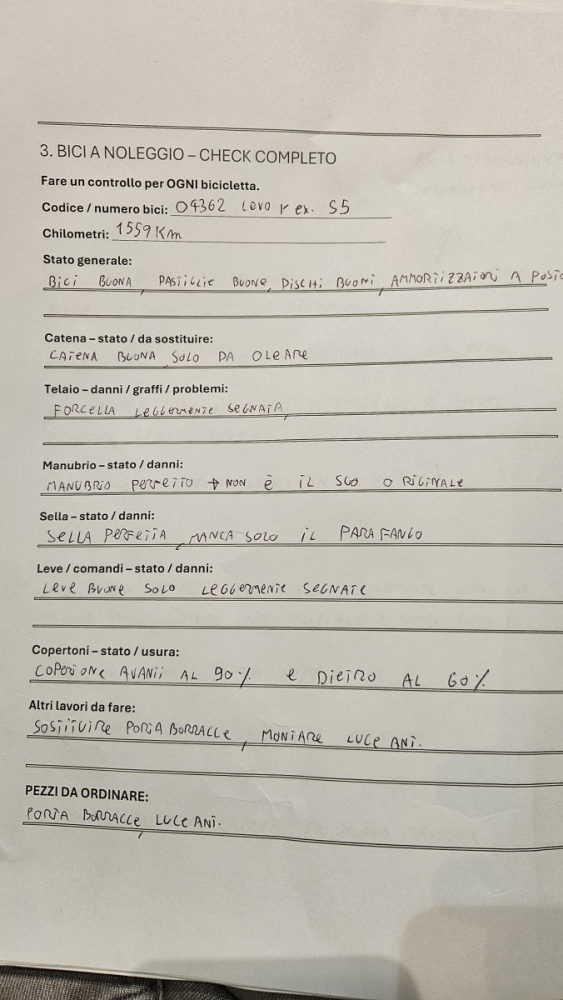 3. BICI A NOLEGGIO – CHECK COMPLETO
Fare un controllo per OGNI bicicletta.
Codice / numero bici: 04362 LEVO r ex. S5
Chilometri: 1559 Km
Stato generale:
BICI BUONA, PASTIGLIE BUONE, DISCHI BUONI, AMMORTIZZATORI A POSTO
Catena – stato / da sostituire:
CATENA BUONA SOLO DA OLEARE
Telaio – danni / graffi / problemi:
FORCELLA LEGGERMENTE SEGNATA
Manubrio – stato / danni:
MANUBRIO PERFETTO → NON È IL SUO ORIGINALE
Sella – stato / danni:
SELLA PERFETTA, MANCA SOLO IL PARAFANGO
Leve / comandi – stato / danni:
LEVE BUONE SOLO LEGGERMENTE SEGNATE
Copertoni – stato / usura:
COPERTONE AVANTI AL 90% E DIETRO AL 60%
Altri lavori da fare:
SOSTITUIRE PORTA BORRACCE, MONTARE LUCE ANT.
PEZZI DA ORDINARE:
PORTA BORRACCE, LUCE ANT.